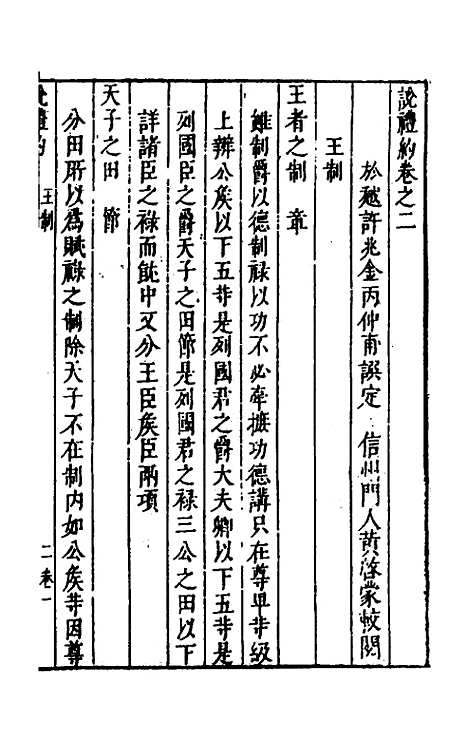 說禮約卷之二
於越許兆金丙仲甫譔定 信州門人黃啓蒙較閱
王制
王者之制 章
雖制爵以德制祿以功不必牽擾功德講只在尊卑等級
上辨公矦以下五等是列國君之爵大夫卿以下五等是
列國臣之爵天子之田節是列國君之祿三公之田以下
詳諸臣之祿而就中又分王臣矦臣兩項
天子之田 節
分田所以爲賦祿之制除天子不在制內如公矦等因尊
說禮約 王制 二卷 一